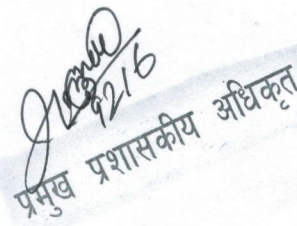 9216
प्रमुख प्रशासकीय अधिकृत